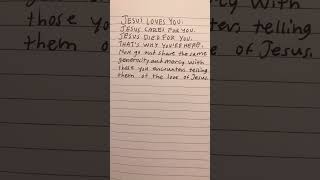 JESUS LOVES YOU.
JESUS CARES FOR YOU.
JESUS DIED FOR YOU.
THAT'S WHY YOU'RE HERE.
Now go out share the same
generocity and mercy with
those you encounter, telling
them of the love of Jesus.